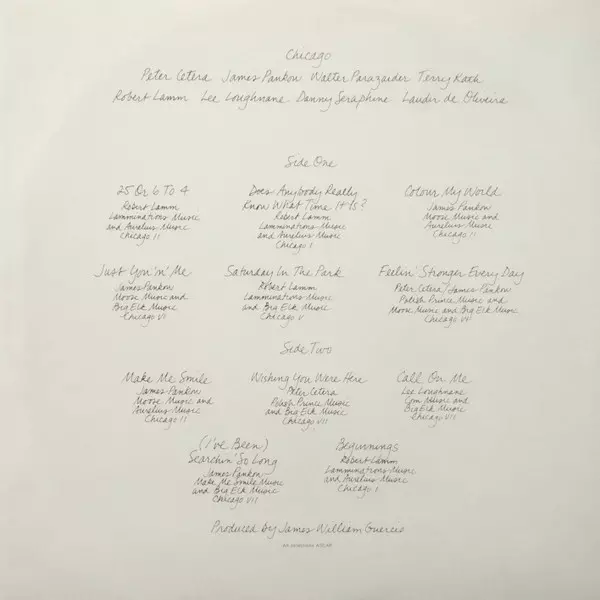 Chicago
Peter Cetera James Pankow Walter Parazaider Terry Kath
Robert Lamm Lee Loughnane Danny Seraphine Laudir de Oliveira
Side One
25 Or 6 To 4
Robert Lamm
Lamminations Music
and Aurelius Music
Chicago II
Does Anybody Really
Know What Time It Is?
Robert Lamm
Lamminations Music
and Aurelius Music
Chicago I
Colour My World
James Pankow
Moose Music and
Aurelius Music
Chicago II
Just You 'n' Me
James Pankow
Moose Music and
Big Elk Music
Chicago VI
Saturday In The Park
Robert Lamm
Lamminations Music
and Big Elk Music
Chicago V
Feelin' Stronger Every Day
Peter Cetera/James Pankow
Polish Prince Music and
Moose Music and Big Elk Music
Chicago VI
Side Two
Make Me Smile
James Pankow
Moose Music and
Aurelius Music
Chicago II
Wishing You Were Here
Peter Cetera
Polish Prince Music
and Big Elk Music
Chicago VII
Call On Me
Lee Loughnane
Com Music and
Big Elk Music
Chicago VII
(I've Been)
Searchin' So Long
James Pankow
Make Me Smile Music
and Big Elk Music
Chicago VII
Beginnings
Robert Lamm
Lamminations Music
and Aurelius Music
Chicago I
Produced by James William Guercio